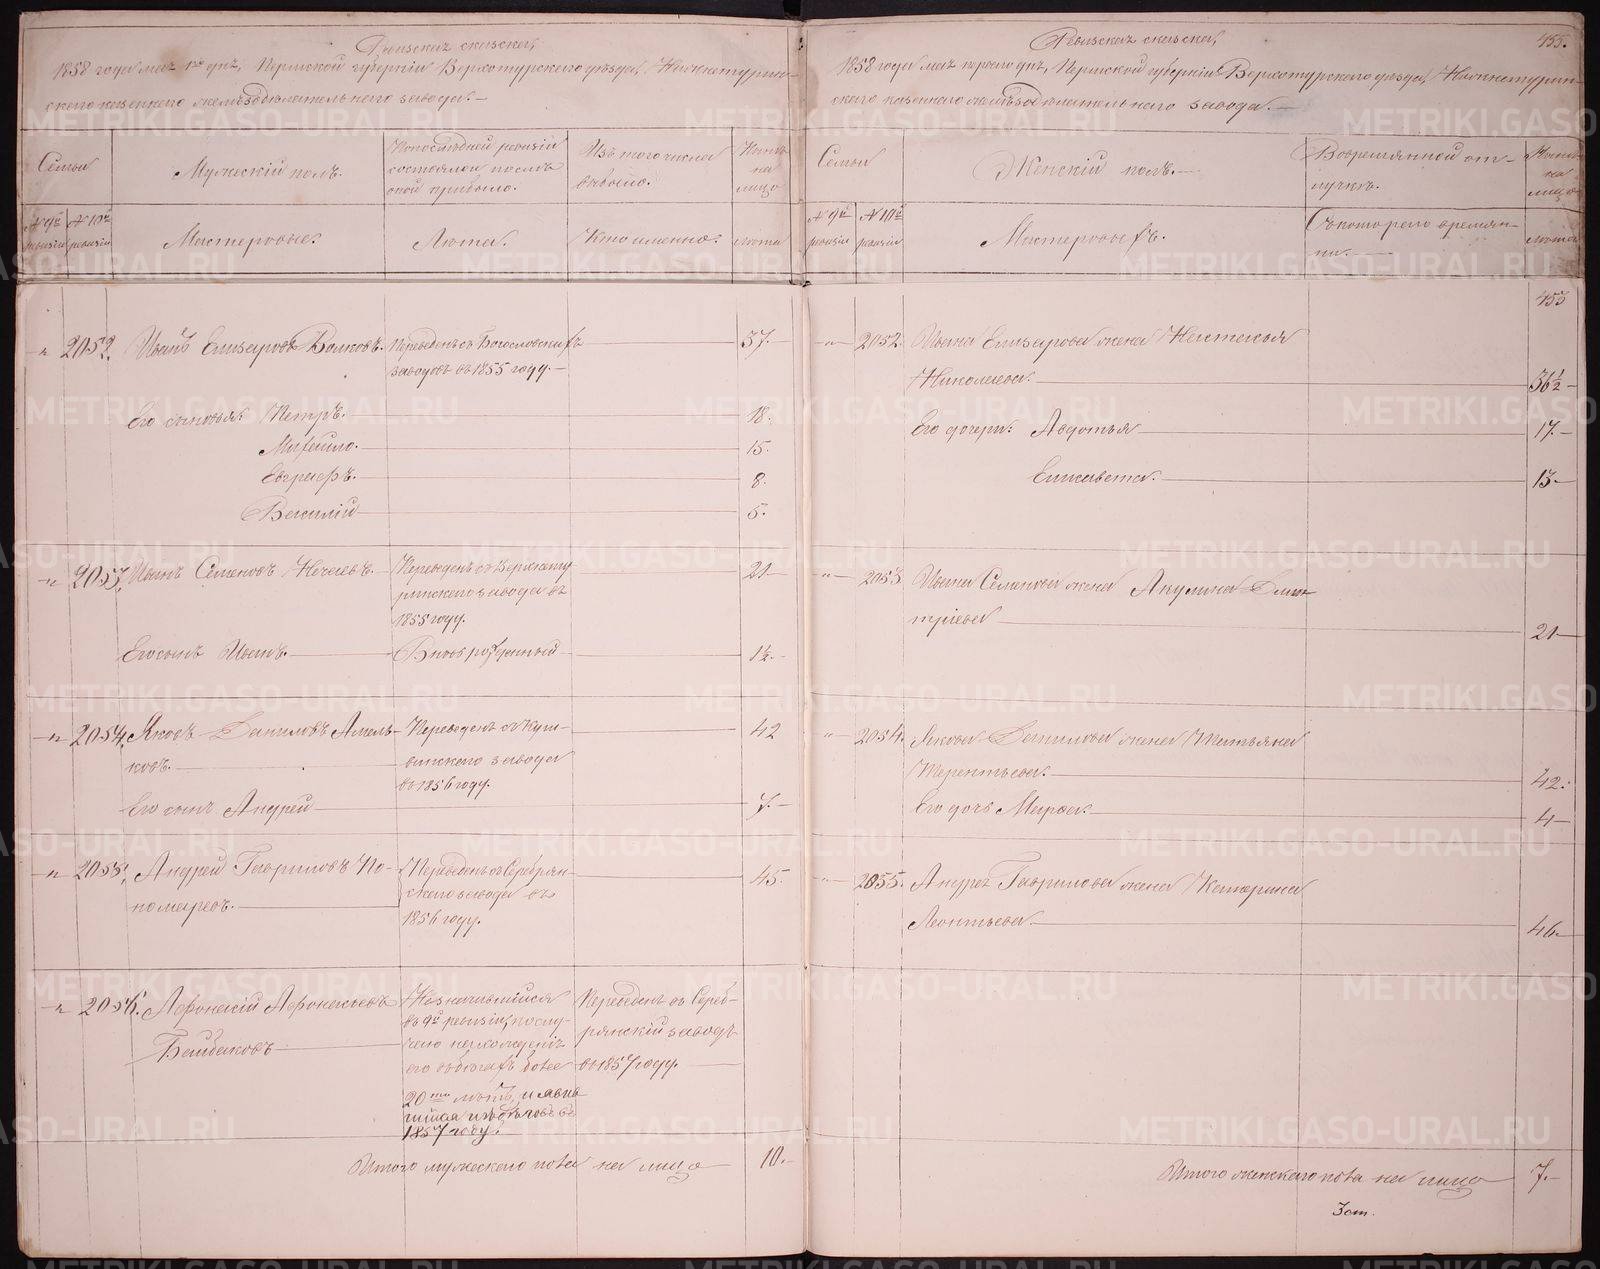 Ревизская сказка,
1858 года мая 1го дня, Пермской губернiи Верхотурского уѣзда, Нижнетурин-
скаго казеннаго желѣзодѣлательнаго завода.—
Семьи
Мужескiй полъ.
По послѣдней ревизiи
состояло и послѣ
оной прибыло.
Изъ того числа
выбыло.
Нынѣ
на
лицо
№ 9й
ревизiи
№ 10й
ревизiи
Мастеровые.
Лѣта.
Кто именно.
лѣта
" 2052. Иванъ Елизаровъ Волковъ.
Переведенъ съ Богословскихъ
заводовъ въ 1855 году.—
37.
Его сыновья: Петръ. 18.
Михайло. 15.
Евграфъ. 8.
Василiй 5.
" 2053. Иванъ Семеновъ Нечаевъ.
Переведенъ съ Верхнету
ринскаго завода въ
1855 году.
21
Его сынъ Иванъ. Вновь рожденный 1½.
" 2054. Яковъ Даниловъ Амель-
ковъ.
Переведенъ съ Куш-
винскаго завода
въ 1856 году.
42
Его сынъ Андрей 7.
" 2055. Андрей Гавриловъ По-
номаревъ.
Переведенъ съ Серебрян-
скаго завода въ
1856 году.
45.
" 2056. Афонасiй Афонасьевъ
Байбаковъ
Незначившийся
въ 9й ревизiи, по слу-
чаю нахожденiя
его въ бѣгахъ болѣе
20ти лѣтъ, и явив
шiйся изъ бѣговъ въ
1857 году.
Переведенъ въ Сереб-
рянскiй заводъ
въ 1857 году.
Итого мужескаго пола на лицо 10.
455.
Ревизская сказка,
1858 года мая перваго дня, Пермской губернiи Верхотурскаго уѣзда, Нижнетурин-
скаго казеннаго желѣзодѣлательнаго завода.—
Семьи
Женскiй полъ.—
Во временной от-
лучкѣ.
Нынѣ
на
лицо
№ 9й
ревизiи
№ 10й
ревизiи
Мастеровыхъ.
Съ котораго времян-
ни.
лѣта
455
" 2052. Ивана Елизарова жена Настасья
Николаева. 36½
Его дочери: Авдотья 17.
Елисавета. 13.
" 2053 Ивана Семенова жена Акулина Дми-
трiева 21
" 2054. Якова Данилова жена Татьяна
Терентьева. 42.
Его дочь Марфа. 4
" 2055. Андрея Гаврилова жена Катерина
Леонтьева. 46.
Итого женскаго пола на лицо 7.
METRIKI.GASO-URAL.RU